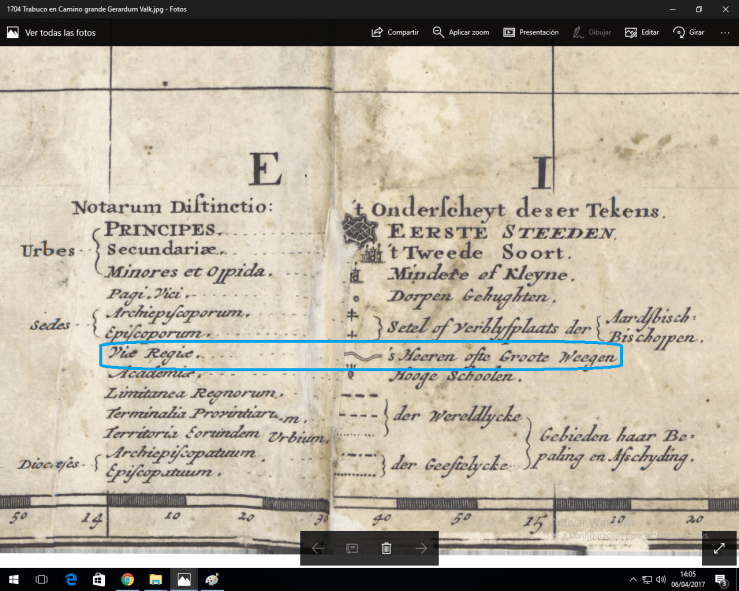 1704 Trabuco en Camino grande Gerardum Valk.jpg - Fotos
Ver todas las fotos
Compartir
Aplicar zoom
Presentación
Dibujar
Editar
Girar
E I
Notarum Distinctio: 't Onderscheyt deser Tekens.
Urbes PRINCIPES. EERSTE STEEDEN.
Secundariæ. 't Tweede Soort.
Minores et Oppida. Mindere of Kleyne.
Pagi, Vici. Dorpen Gehughten.
Sedes Archiepiscoporum. Setel of Verblyfplaats der Aardsbisch-
Episcoporum. Bischoppen.
Viæ Regiæ. 's Heeren ofte Groote Weegen
Academiæ. Hooge Schoolen.
Limitanea Regnorum.
Terminalia Provintiarum. der Wereldlycke
Territoria Eorundem Urbium. Gebieden haar Be-
Dioceses Archiepiscopatuum der Geestelycke paling en Afschyding.
Episcopatuum.
50 14 10 20 30 40 50 15 10 20
14:05
06/04/2017
3